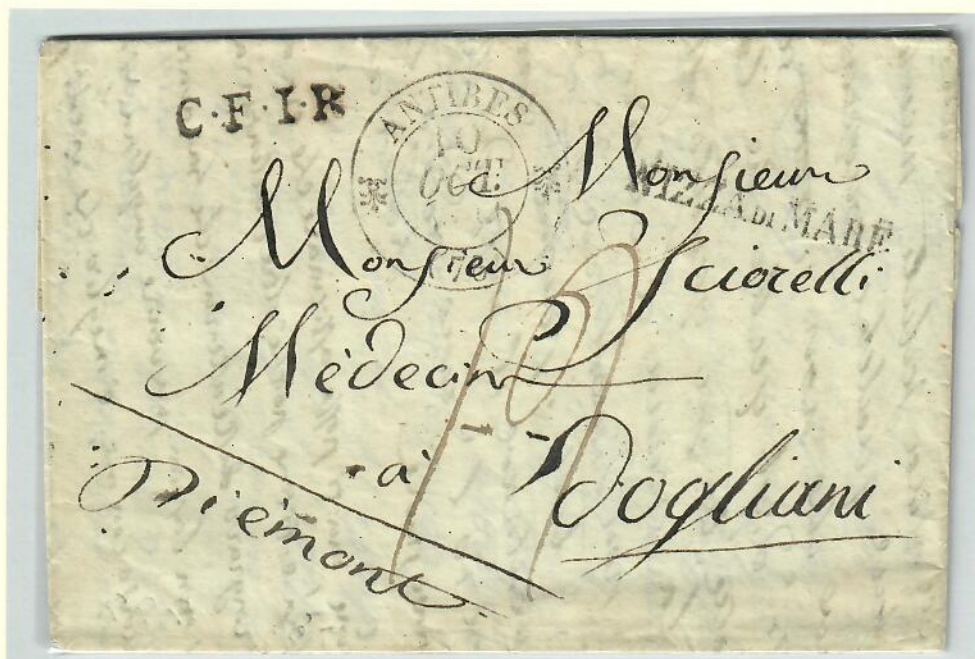 C·F·I·R
ANTIBES
10
OCT.
NIZZA DI MARE
A Monsieur
Monsieur Sciorelli
Médecin
à Dogliani
Piémont